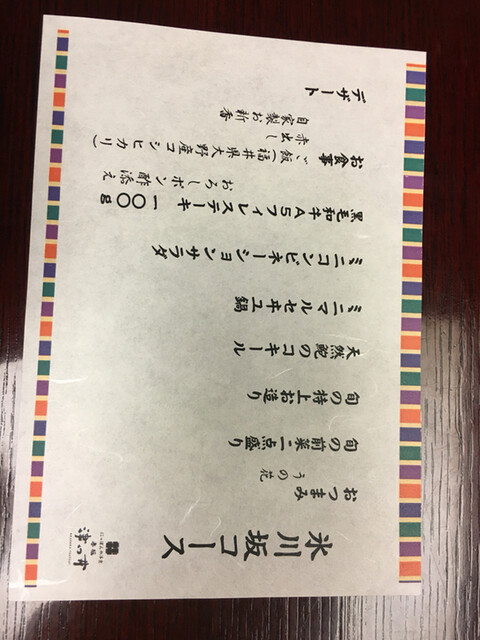 氷川坂コース
おつまみ
うの花
旬の前菜二点盛り
旬の特上お造り
天然鮑のコキール
ミニマルセヰユ鍋
ミニコンビネーションサラダ
黒毛和牛A5フィレステーキ 一〇〇g
おろしポン酢添え
お食事
ご飯(福井県大野産コシヒカリ)
赤出し
自家製お新香
デザート
赤坂
津つ井